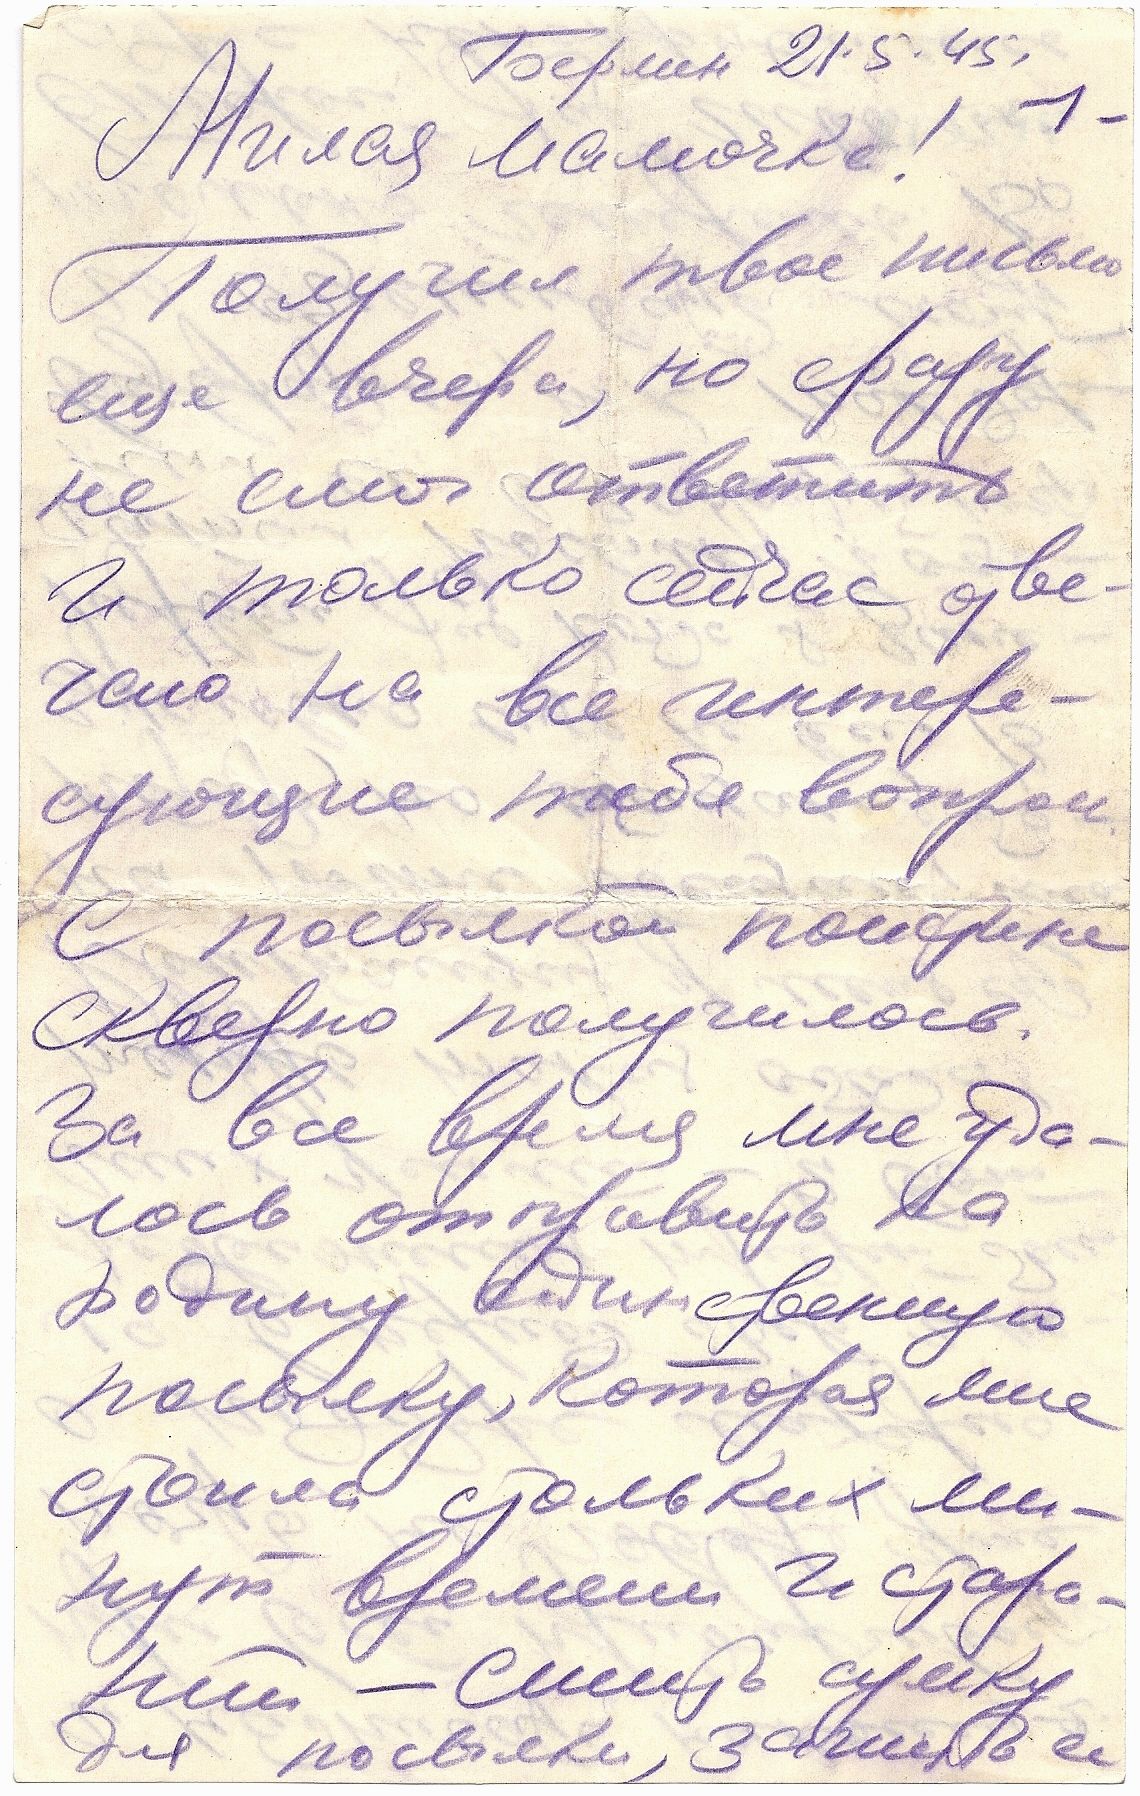 Берлин 21.5.45.
-1-
Милая мамочка!
Получил твое письмо
еще вчера, но сразу
не смог ответить
и только сейчас отве-
чаю на все интере-
сующие тебя вопросы.
С посылкой поистине
скверно получилось.
За все время мне уда-
лось отправить на
родину единственную
посылку, которая мне
стоила стольких ми-
нут времени и стара-
ний — сшить сумку
для посылки, зашить и